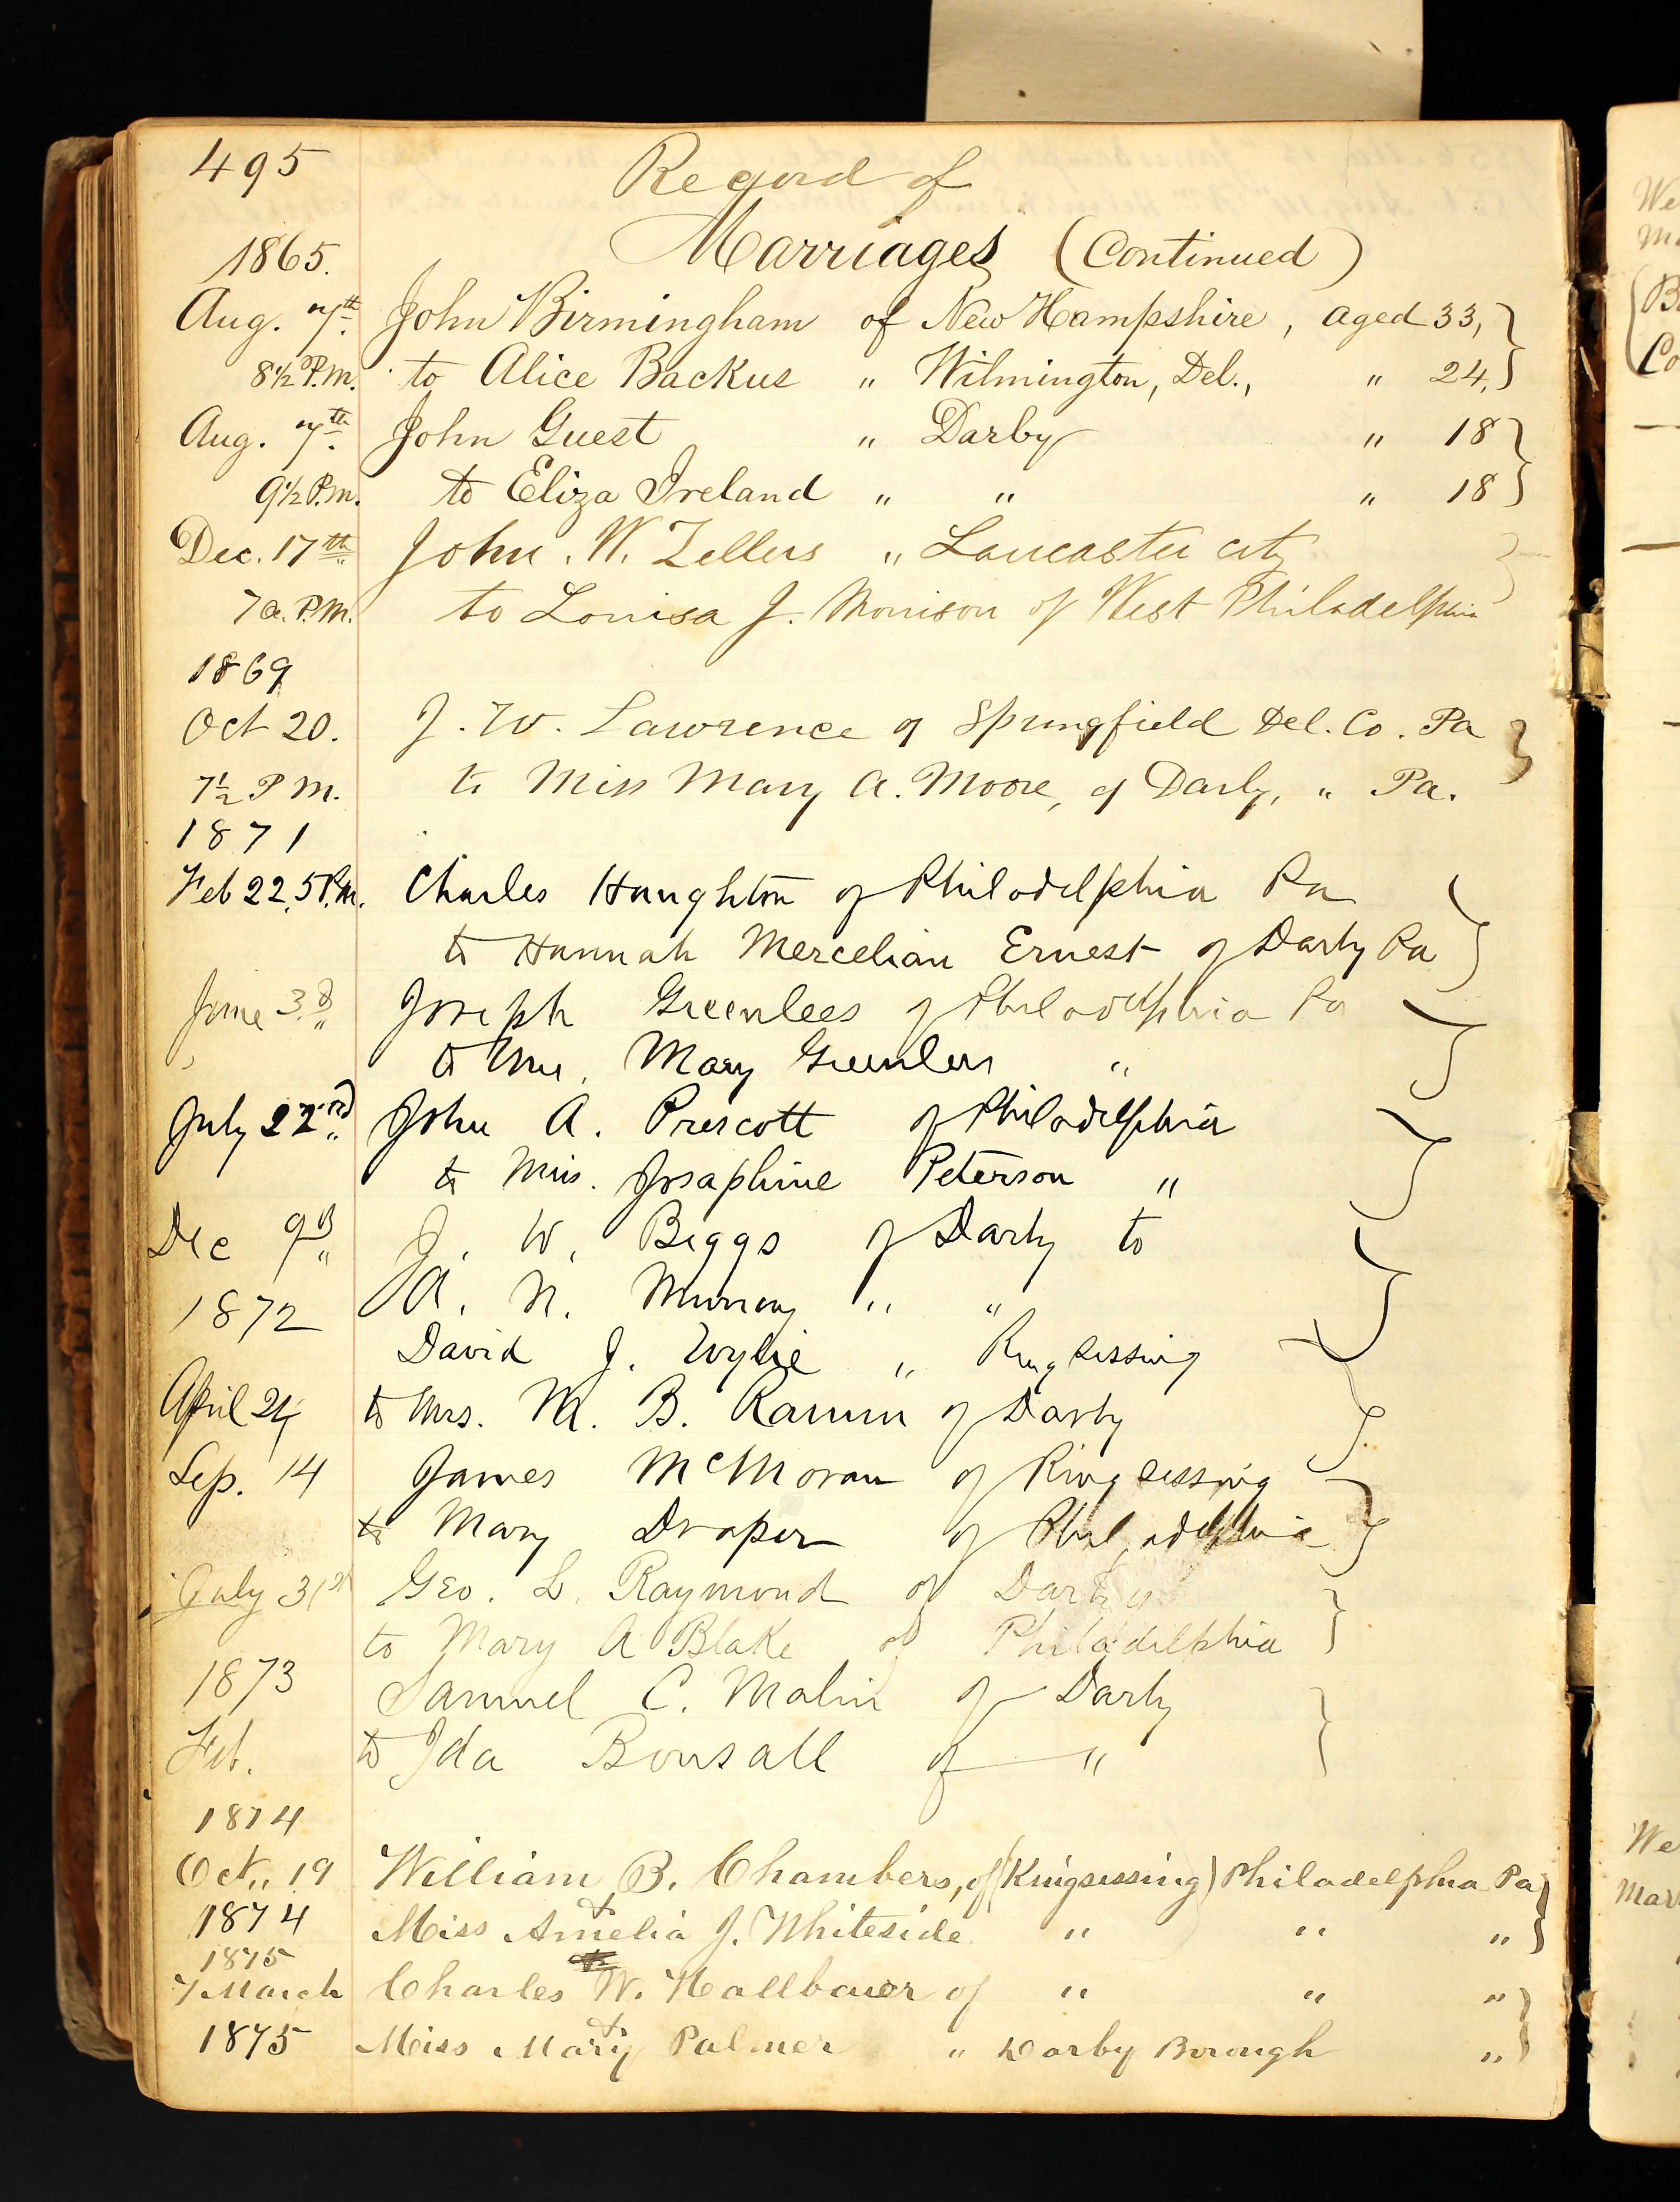 495 Record of
Marriages (Continued)
1865.
Aug. 7th. John Birmingham of New Hampshire, aged 33,
8½ P.M. to Alice Backus " Wilmington, Del., " 24,
Aug. 7th. John Guest " Darby " 18
9½ P.M. to Eliza Ireland " " " 18
Dec. 17th John. W. Zellers " Lancaster city
7 P.M. to Louisa J. Morrison of West Philadelphia
1869
Oct 20. J. W. Lawrence of Springfield Del. Co. Pa
7½ P M. to Miss Mary A. Moore, of Darby, " Pa.
1871
Feb 22, 5 P.M. Charles Haughton of Philadelphia Pa
to Hannah Mercelian Ernest of Darby Pa
June 3d Joseph Greenlees of Philadelphia Pa
to Mrs. Mary Greenlees "
July 22nd John A. Prescott of Philadelphia
to Miss. Josaphine Peterson "
Dec 9th J. W. Beggs of Darby to
A. N. Murray " "
1872
David J. Wylie " Kingsessing
April 24 to Mrs. M. B. Ramm of Darby
Sep. 14 James McMoran of Kingsessing
to Mary Draper of Philadelphia
July 31st Geo. L. Raymond of Darby
to Mary A Blake of Philadelphia
1873
Samuel C. Malin of Darby
Feb. to Ida Bonsall of "
1874
Oct,. 19 William B. Chambers, of (Kingsessing) Philadelphia Pa
&
1874 Miss Amelia J. Whiteside " " "
1875
7 March Charles W. Hallbauer of " " "
&
1875 Miss Mary Palmer " Darby Borough "
We
B
Co
We
Mar